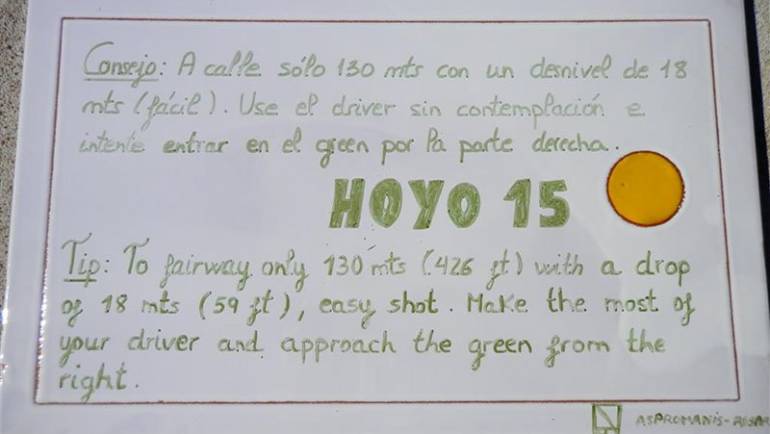 Consejo: A calle sólo 130 mts con un desnivel de 18
mts (fácil). Use el driver sin contemplación e
intente entrar en el green por la parte derecha.
HOYO 15
Tip: To fairway only 130 mts (426 ft) with a drop
of 18 mts (59 ft), easy shot. Make the most of
your driver and approach the green from the
right.
ASPROMANIS-